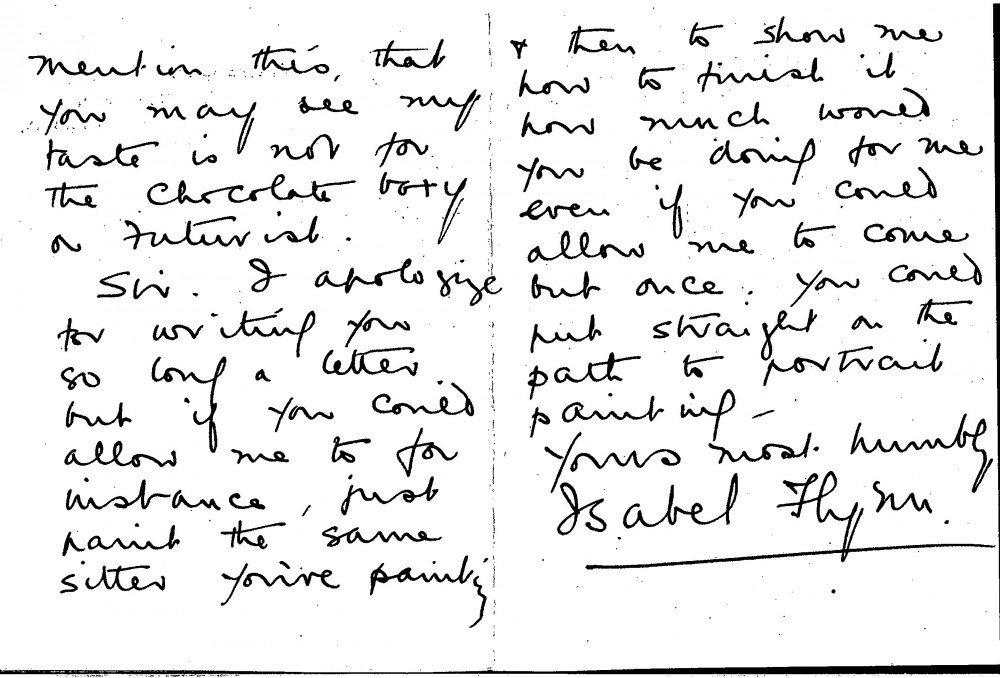 mention this, that
you may see my
taste is not for
the chocolate boxy
or Futurist.
Sir. I apologize
for writing you
so long a letter
but if you could
allow me to for
instance, just
paint the same
sitter you're painting
& then to show me
how to finish it
how much would
you be doing for me
even if you could
allow me to come
but once. You could
put straight on the
path to portrait
painting –
Yours most humbly
Isabel Flynn.